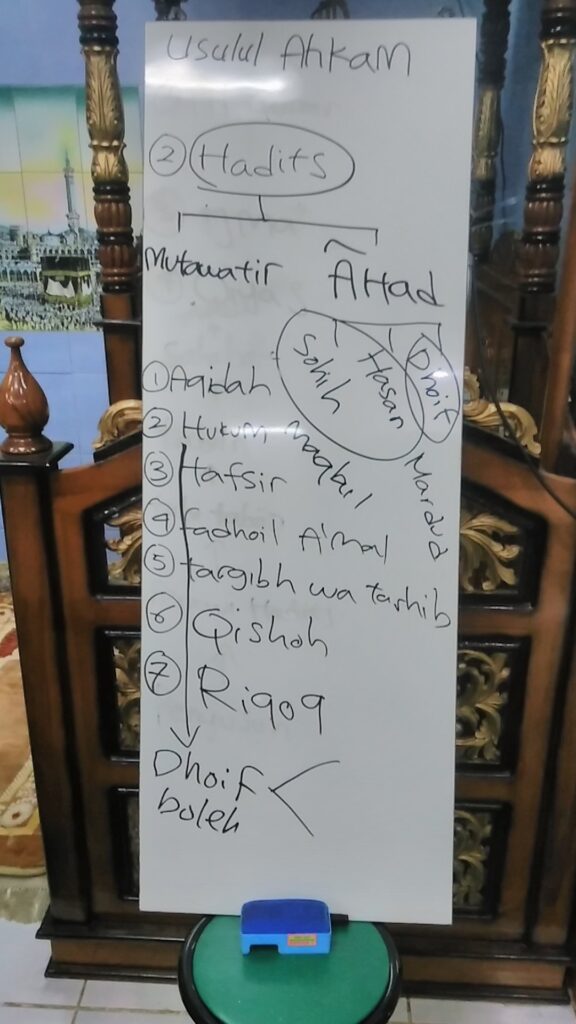 Usulul Ahkam
② Hadits
Mutawatir AHad
Sohih Hasan Dhoif
maqbul Mardud
① Aqidah
② Hukum
③ tafsir
④ fadhoil A'mal
⑤ targibh wa tarhib
⑥ Qishoh
⑦ Riqoq
Dhoif
boleh